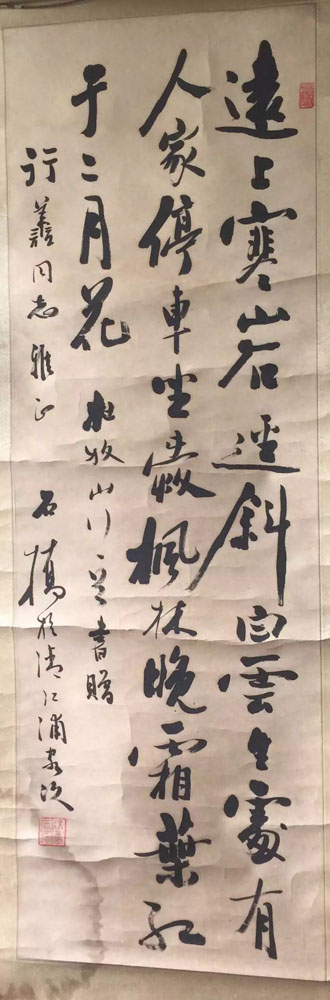 遠上寒山石逕斜白雲生處有
人家停車坐愛楓林晚霜葉紅
于二月花 杜牧山行一首書贈
行同志雅正 石橋於清江浦客次